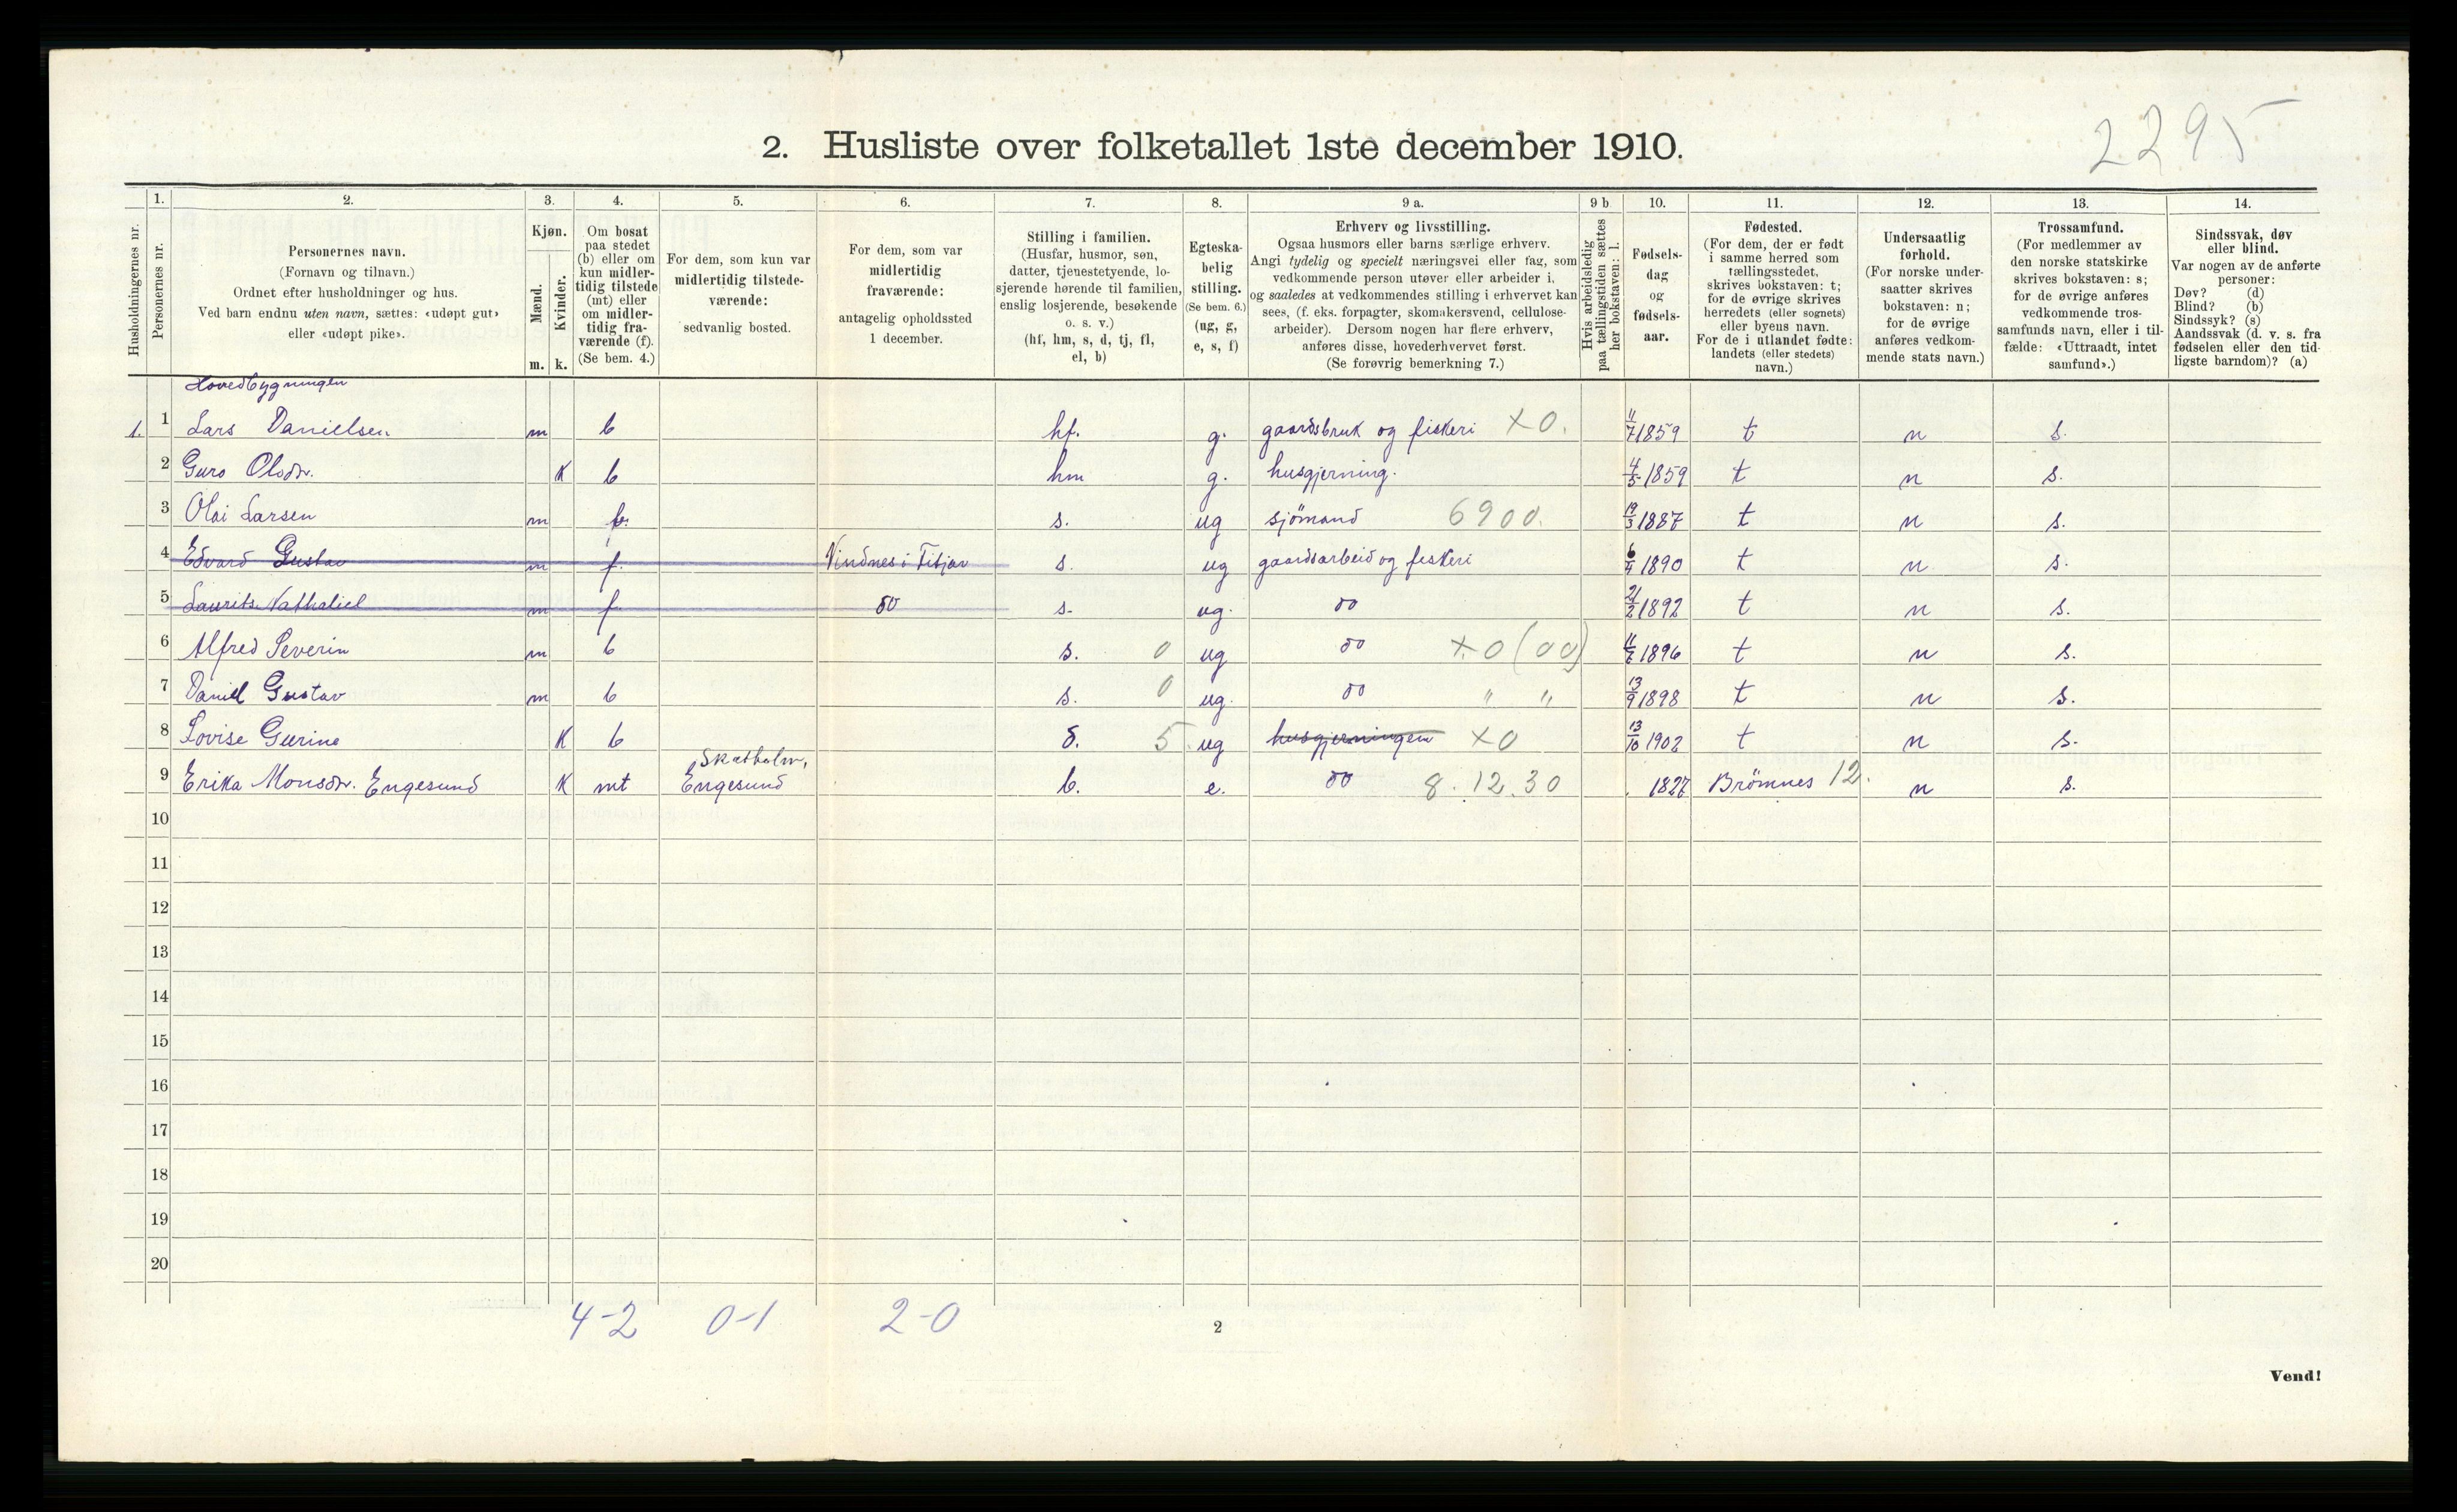 2295
2. Husliste over folketallet 1ste december 1910.
1. 2. 3. 4. 5. 6. 7. 8. 9 a. 9 b 10. 11. 12. 13. 14.
Husholdningernes nr.
Personernes nr.
Personernes navn.
(Fornavn og tilnavn.)
Ordnet efter husholdninger og hus.
Ved barn endnu uten navn, sættes: «udøpt gut»
eller «udøpt pike».
Kjøn.
Mænd.
Kvinder.
m. k.
Om bosat
paa stedet
(b) eller om
kun midler-
tidig tilstede
(mt) eller
om midler-
tidig fra-
værende (f).
(Se bem. 4.)
For dem, som kun var
midlertidig tilstede-
værende:
sedvanlig bosted.
For dem, som var
midlertidig
fraværende:
antagelig opholdssted
1 december.
Stilling i familien.
(Husfar, husmor, søn,
datter, tjenestetyende, lo-
sjerende hørende til familien,
enslig losjerende, besøkende
o. s. v.)
(hf, hm, s, d, tj, fl,
el, b)
Egteska-
belig
stilling.
(Se bem. 6.)
(ug, g,
e, s, f)
Erhverv og livsstilling.
Ogsaa husmors eller barns særlige erhverv.
Angi tydelig og specielt næringsvei eller fag, som
vedkommende person utøver eller arbeider i,
og saaledes at vedkommendes stilling i erhvervet kan
sees, (f. eks. forpagter, skomakersvend, cellulose-
arbeider). Dersom nogen har flere erhverv,
anføres disse, hovederhvervet først.
(Se forøvrig bemerkning 7.)
Hvis arbeidsledig
paa tællingstiden sættes
her bokstaven: l.
Fødsels-
dag
og
fødsels-
aar.
Fødested.
(For dem, der er født
i samme herred som
tællingsstedet,
skrives bokstaven: t;
for de øvrige skrives
herredets (eller sognets)
eller byens navn.
For de i utlandet fødte:
landets (eller stedets)
navn.)
Undersaatlig
forhold.
(For norske under-
saatter skrives
bokstaven: n;
for de øvrige
anføres vedkom-
mende stats navn.)
Trossamfund.
(For medlemmer av
den norske statskirke
skrives bokstaven: s;
for de øvrige anføres
vedkommende tros-
samfunds navn, eller i til-
fælde: «Uttraadt, intet
samfund».)
Sindssvak, døv
eller blind.
Var nogen av de anførte
personer:
Døv? (d)
Blind? (b)
Sindssyk? (s)
Aandssvak (d. v. s. fra
fødselen eller den tid-
ligste barndom)? (a)
Hovedbygningen
1. 1 Lars Danielsen m b hf. g. gaardsbruk og fiskeri X0. 11/7 1859 t n s.
2 Guro Olsdr. K b hm g. husgjerning. 4/5 1859 t n s.
3 Olai Larsen m f. s. ug sjömand 6900. 19/3 1887 t n s.
4 Edvard Gustav m f. Vindnes i Fitjar s. ug gaardsarbeid og fiskeri 6/4 1890 t n s.
5 Laurits Nathaliel m f do s. ug. do 21/2 1892 t n s.
6 Alfred Severin m b s. 0 ug do X0 (00) 1896 t n s.
7 Daniel Gustav m b s. 0 ug. do " " 13/9 1898 t n s.
8 Lovise Gurine K b d. 5 ug husgjerningen X0 13/10 1902 t n s.
Skatholm,
9 Erika Monsdr. Engesund K mt Engesund b. e. do 8.12.30 1827 Brömnes 12. n s.
10
11
12
13
14
15
16
17
18
19
20
4-2 0-1 2-0
2
Vend!